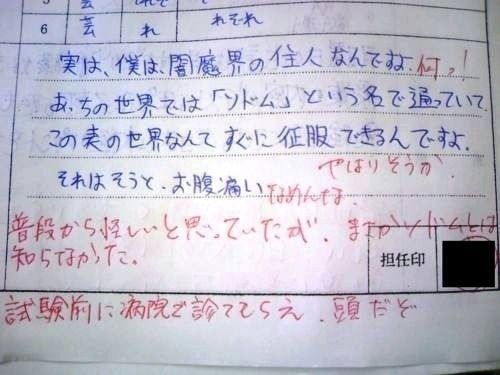 6 芸 れ れぞれ
実は、僕は、闇魔界の住人なんですよ. 何っ!
あっちの世界では「ソドム」という名で通っていて、
この表の世界なんてすぐに征服できるんですよ.
やはりそうか.
それはそうと、お腹痛い なめんなよ
普段から怪しいと思っていたが、まさかソドムとは
知らなかった.
担任印
試験前に病院で診てもらえ. 頭だぞ